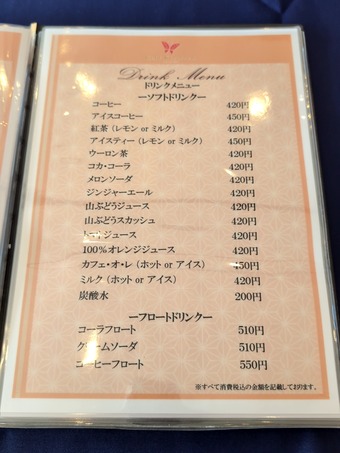 Drink Menu
ドリンクメニュー
ーソフトドリンクー
コーヒー 420円
アイスコーヒー 450円
紅茶（レモン or ミルク） 420円
アイスティー（レモン or ミルク） 450円
ウーロン茶 420円
コカ・コーラ 420円
メロンソーダ 420円
ジンジャーエール 420円
山ぶどうジュース 420円
山ぶどうスカッシュ 420円
ジュース 420円
100％オレンジジュース 420円
カフェ・オ・レ（ホット or アイス） 450円
ミルク（ホット or アイス） 420円
炭酸水 200円
ーフロートドリンクー
コーラフロート 510円
クリームソーダ 510円
コーヒーフロート 550円
※すべて消費税込の金額を記載しております。